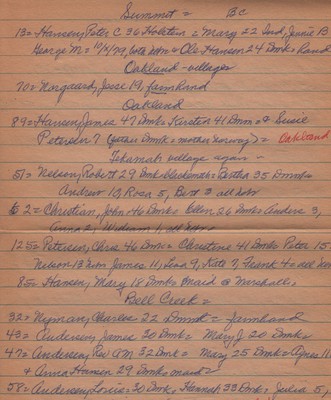 Summit = BC
13= Hansen, Peter C. 36 Holstein = Mary 22 Swd, Jennie B
George M= 10/8/79, both Nebr = Ole Hansen 24 Dmk= hand
Oakland - villages
70= Norgaard, Jesse 19, farmhand
Oakland
89= Hansen, James 47 Dmk= Kirsten 41 Dmk= & Susie
Petersen 7 (father Dmk = mother Norway) = Oakland
Tekamah village again -
51= Nelson, Robert 29 Dmk blacksmith= Bertha 35 Dmk=
Andrew 10, Rosa 5, Bert 3 all Nebr
2= Christian, John 46 Dmk= Ellen 26 Dmk= Anders 3,
Anna 2, William 1, all Nebr=
125= Petersen, Chris 46 Dmk= Christine 41 Dmk= Peter 15
Nelson 13 James 11, 9, Kate 7, Frank 4= all Nebr
85= Hansen, Mary 18 Dmk= Maid @ Marshalls,
Bell Creek =
32= Nyman, Charles 22 Dmk = farmhand
43= Andersen, James 30 Dmk= Mary J. 20 Dmk=
47= Andersen, Rev AM 32 Dmk = Mary 25 Dmk= Agnes 11
& Anna Hansen 29 Dmk= maid=
58= Andersen, Louis= 30 Dmk, Hannah 33 Dmk= Julia 5,